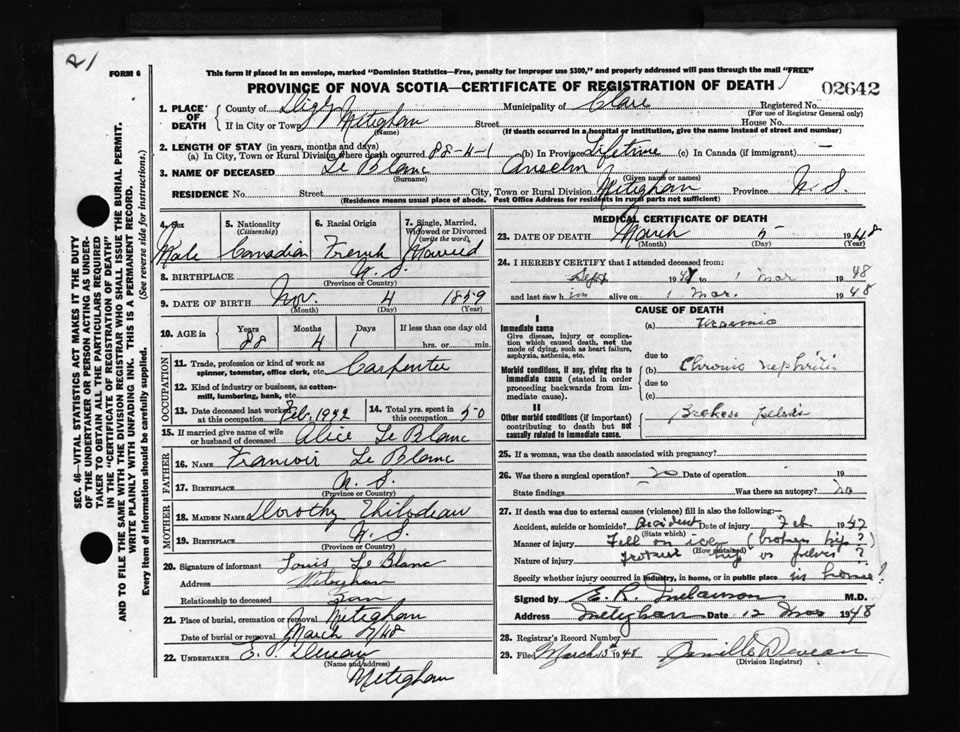 R1
FORM 6
This form if placed in an envelope, marked "Dominion Statistics—Free, penalty for improper use $300," and properly addressed will pass through the mail "FREE"
PROVINCE OF NOVA SCOTIA—CERTIFICATE OF REGISTRATION OF DEATH
02642
SEC. 46—VITAL STATISTICS ACT MAKES IT THE DUTY
OF THE UNDERTAKER OR PERSON ACTING AS UNDER-
TAKER TO OBTAIN ALL THE PARTICULARS REQUIRED
IN THE "CERTIFICATE OF REGISTRATION OF DEATH"
AND TO FILE THE SAME WITH THE DIVISION REGISTRAR WHO SHALL ISSUE THE BURIAL PERMIT.
WRITE PLAINLY WITH UNFADING INK. THIS IS A PERMANENT RECORD.
Every item of information should be carefully supplied. (See reverse side for instructions.)
1. PLACE OF DEATH County of Digby Municipality of Clare Registered No.
(For use of Registrar General only)
If in City or Town Meteghan Street House No.
(Name) (If death occurred in a hospital or institution, give the name instead of street and number)
2. LENGTH OF STAY (in years, months and days)
(a) In City, Town or Rural Division where death occurred 88-4-1 (b) In Province Lifetime (c) In Canada (if immigrant) —
3. NAME OF DECEASED Le Blanc Anselm
(Surname) (Given name or names)
RESIDENCE No. Street City, Town or Rural Division Meteghan Province N.S.
(Residence means usual place of abode. Post Office Address for residents in rural parts not sufficient)
4. Sex 5. Nationality (Citizenship) 6. Racial Origin 7. Single, Married, Widowed or Divorced (write the word)
Male Canadian French Married
8. BIRTHPLACE N.S.
(Province or Country)
9. DATE OF BIRTH Nov. 4 1859
(Month) (Day) (Year)
10. AGE in Years Months Days If less than one day old
88 4 1 hrs. or min.
OCCUPATION
11. Trade, profession or kind of work as spinner, teamster, office clerk, etc. Carpenter
12. Kind of industry or business, as cotton-mill, lumbering, bank, etc.
13. Date deceased last worked at this occupation Feb. 1922 14. Total yrs. spent in this occupation 50
15. If married give name of wife or husband of deceased Alice Le Blanc
FATHER
16. NAME Le Blanc
17. BIRTHPLACE N.S.
(Province or Country)
MOTHER
18. MAIDEN NAME Dorothy Thibodeau
19. BIRTHPLACE N.S.
(Province or Country)
20. Signature of informant Louis Le Blanc
Address Meteghan
Relationship to deceased Son
21. Place of burial, cremation or removal Meteghan
Date of burial or removal March /48
22. UNDERTAKER
(Name and address)
Meteghan
MEDICAL CERTIFICATE OF DEATH
23. DATE OF DEATH March 5 1948
(Month) (Day) (Year)
24. I HEREBY CERTIFY that I attended deceased from:
Sept 1947 to 1 Mar 1948
and last saw him alive on 1 Mar. 1948
CAUSE OF DEATH
I
Immediate cause
Give disease, injury or complication which caused death, not the mode of dying, such as heart failure, asphyxia, asthenia, etc.
(a) Uraemia
due to
Morbid conditions, if any, giving rise to immediate cause (stated in order proceeding backwards from immediate cause).
(b) Chronic nephritis
due to
(c)
II
Other morbid conditions (if important) contributing to death but not causally related to immediate cause.
Broken pelvis
25. If a woman, was the death associated with pregnancy?
26. Was there a surgical operation? no Date of operation 19
State findings Was there an autopsy? no
27. If death was due to external causes (violence) fill in also the following:—
Accident, suicide or homicide? Accident Date of injury Feb. 1947
(State which)
Manner of injury Fell on ice (broken hip?)
(How sustained)
Nature of injury hip or pelvis ?
Specify whether injury occurred in industry, in home, or in public place in home?
Signed by E. R. M.D.
Address Meteghan Date 12 Mar 1948
28. Registrar's Record Number
29. Filed March 13th 1948 Camille Deveau
(Division Registrar)